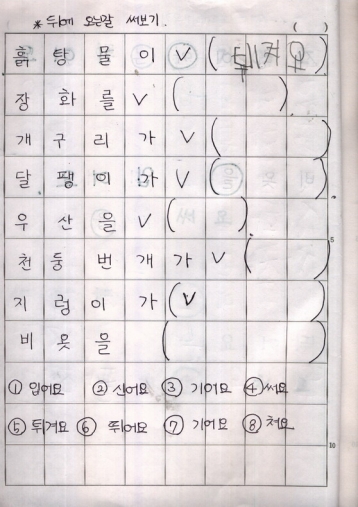 * 뒤에 오는말 써보기. ( )
흙탕물이 V (튀겨요)
장화를 V ( )
개구리가 V ( )
달팽이가 V ( )
우산을 V ( )
천둥번개가 V ( )
지렁이가 (V )
비옷을 ( )
① 입어요 ② 신어요 ③ 기어요 ④ 써요
⑤ 튀겨요 ⑥ 뛰어요 ⑦ 기어요 ⑧ 쳐요
5
10